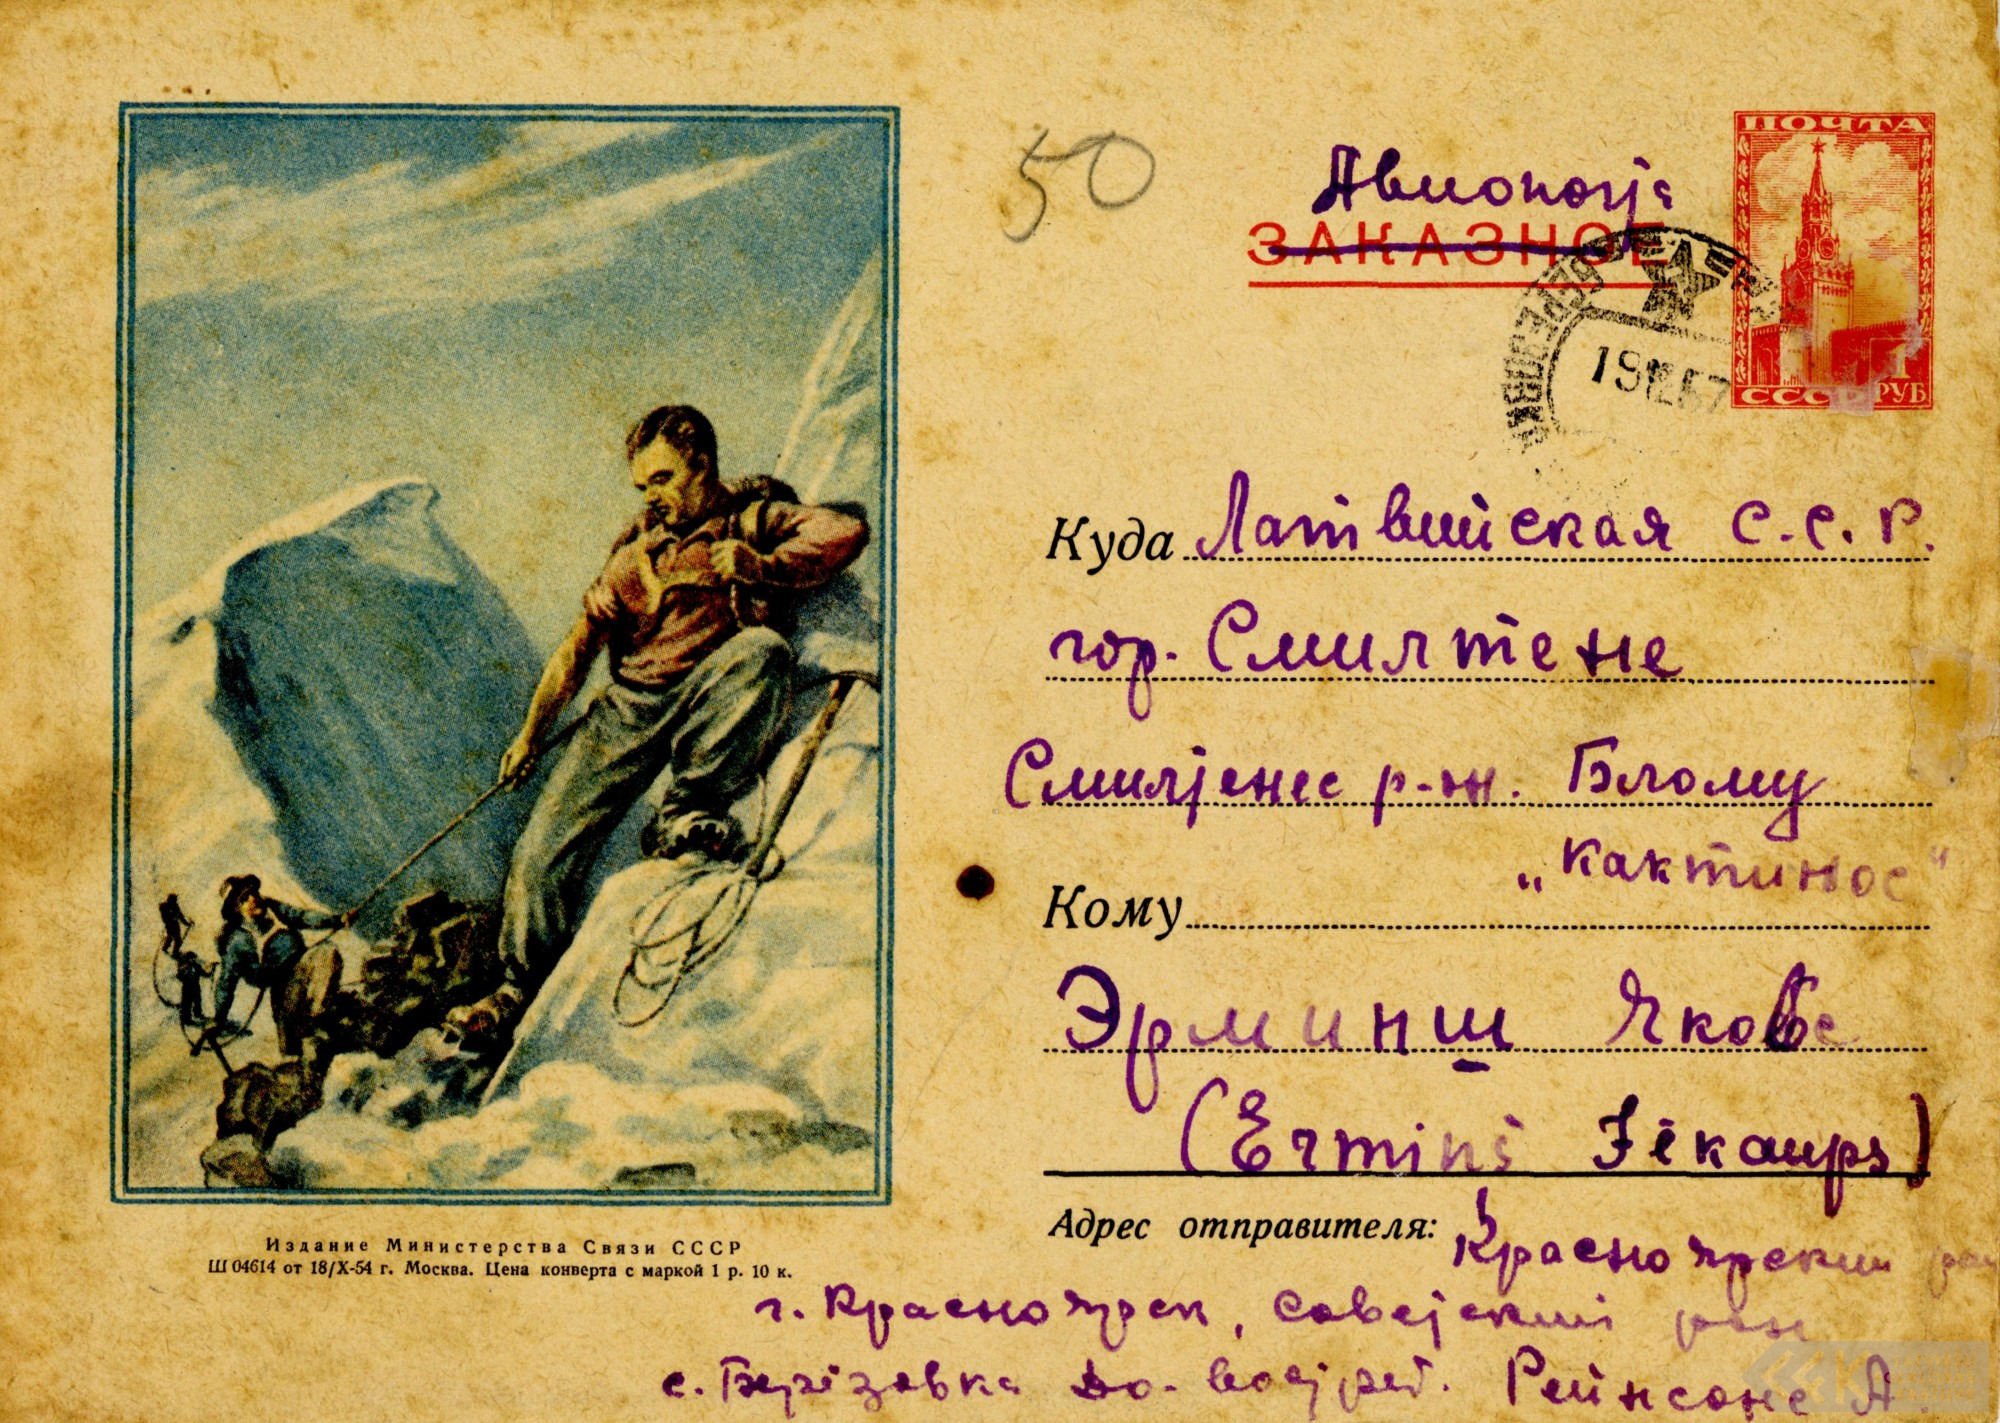 50
Авиопочта
ЗАКАЗНОЕ
ПОЧТА
СССР 1 РУБ
19 57
Куда Латвийская С.С.Р.
гор. Смилтене
Смилтенес р-он. Блому
„Кактинос“
Кому
Эрминш Яковс
(Ermiņš Jēkaups)
Адрес отправителя: Красноярский
г. Красноярск, Советский
с. Березовка до-востреб. Рейнсоне А.
Издание Министерства Связи СССР
Ш 04614 от 18/X-54 г. Москва. Цена конверта с маркой 1 р. 10 к.